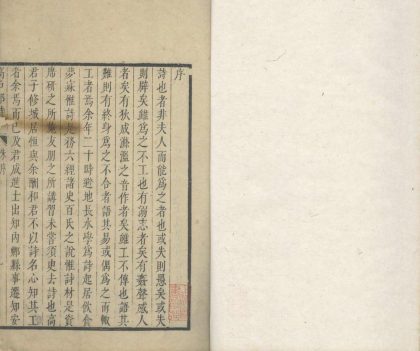 序
詩也者非夫人而能為之者也或失則愚矣或失
則辟矣雖為之不工也有溺志者矣有蠱聲感人
者矣有狄成滌濫之音作者矣雖工不傳也語其
難則有終身為之不合者語其易或偶為之而輒
工者焉余年二十時避地長水學為詩起居飲食
夢寐惟詩是務六經諸史百氏之說惟詩材是資
席硯之所施友朋之所講習未嘗須臾去詩也高
君子修城居恒與余酬和君不以詩名心知其工
者余焉而已及君成進士出知內鄉縣事遷知安